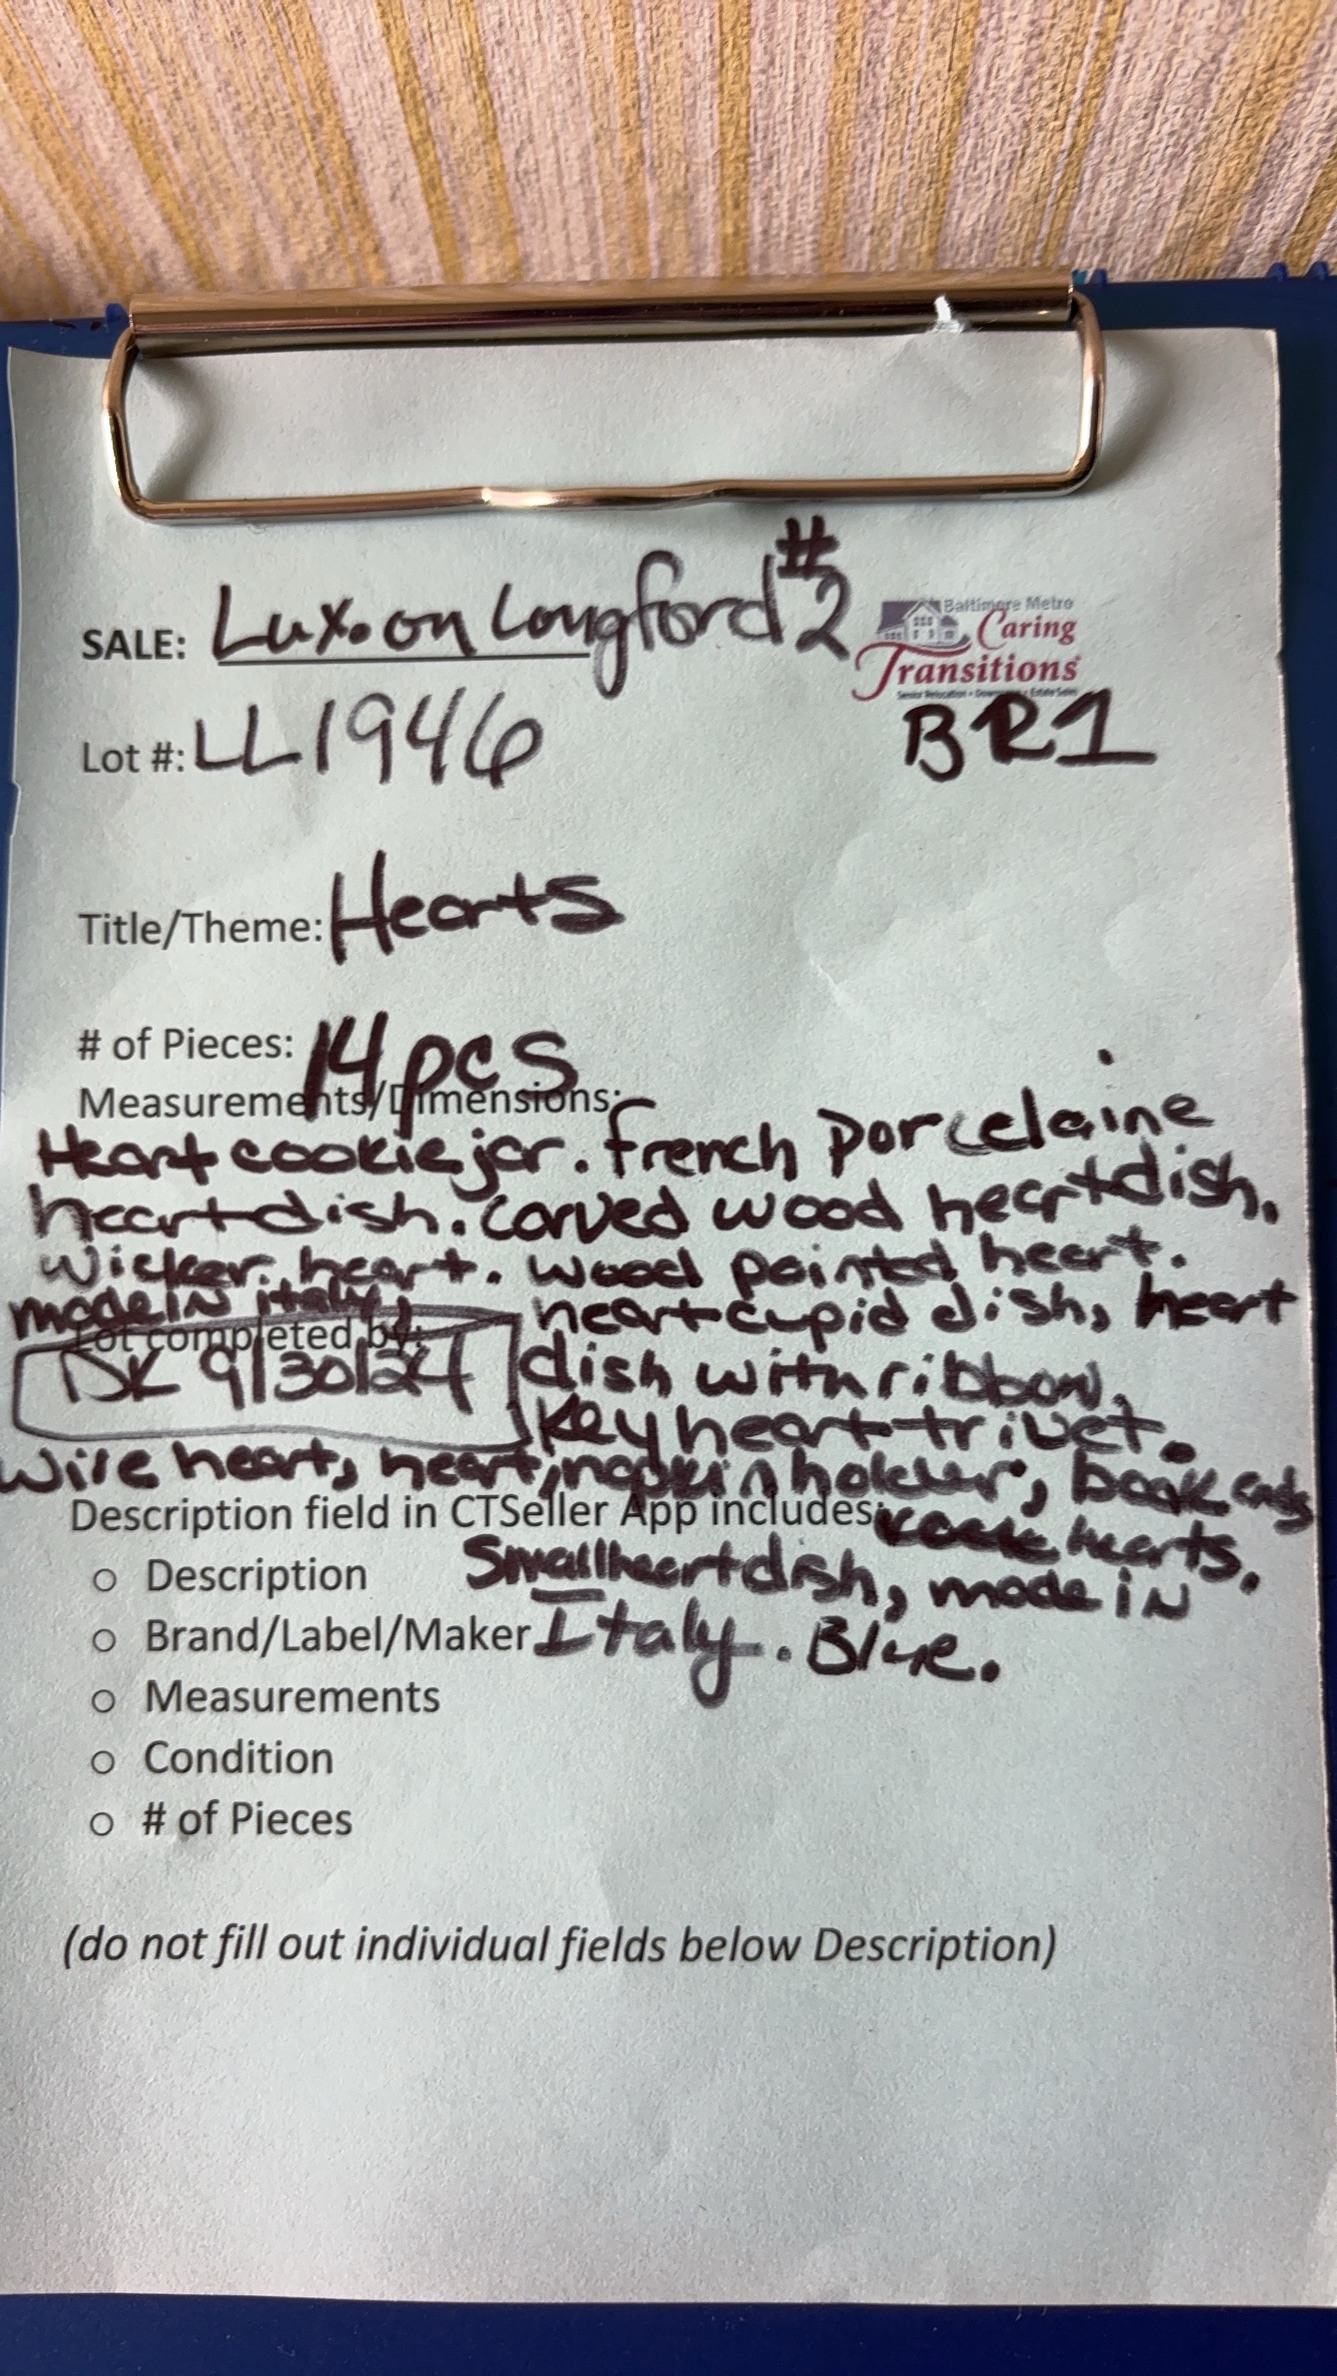 SALE: Lux. on Longford #2
Baltimore Metro
Caring
Transitions
Lot #: LL1946
BR1
Title/Theme: Hearts
# of Pieces: 14 pcs
Measurements/Dimensions:
Heart cookie jar. french porcelaine
heart dish. carved wood heart dish.
wicker heart. wood painted heart.
made in italy, heart cupid dish, heart
Lot completed by:
DK 9/30/24 dish with ribbon.
Key heart trivet.
wire heart, heart, napkin holder, book ends
Description field in CTSeller App includes: hearts.
o Description Small heart dish, made in
o Brand/Label/Maker Italy. Blue.
o Measurements
o Condition
o # of Pieces
(do not fill out individual fields below Description)